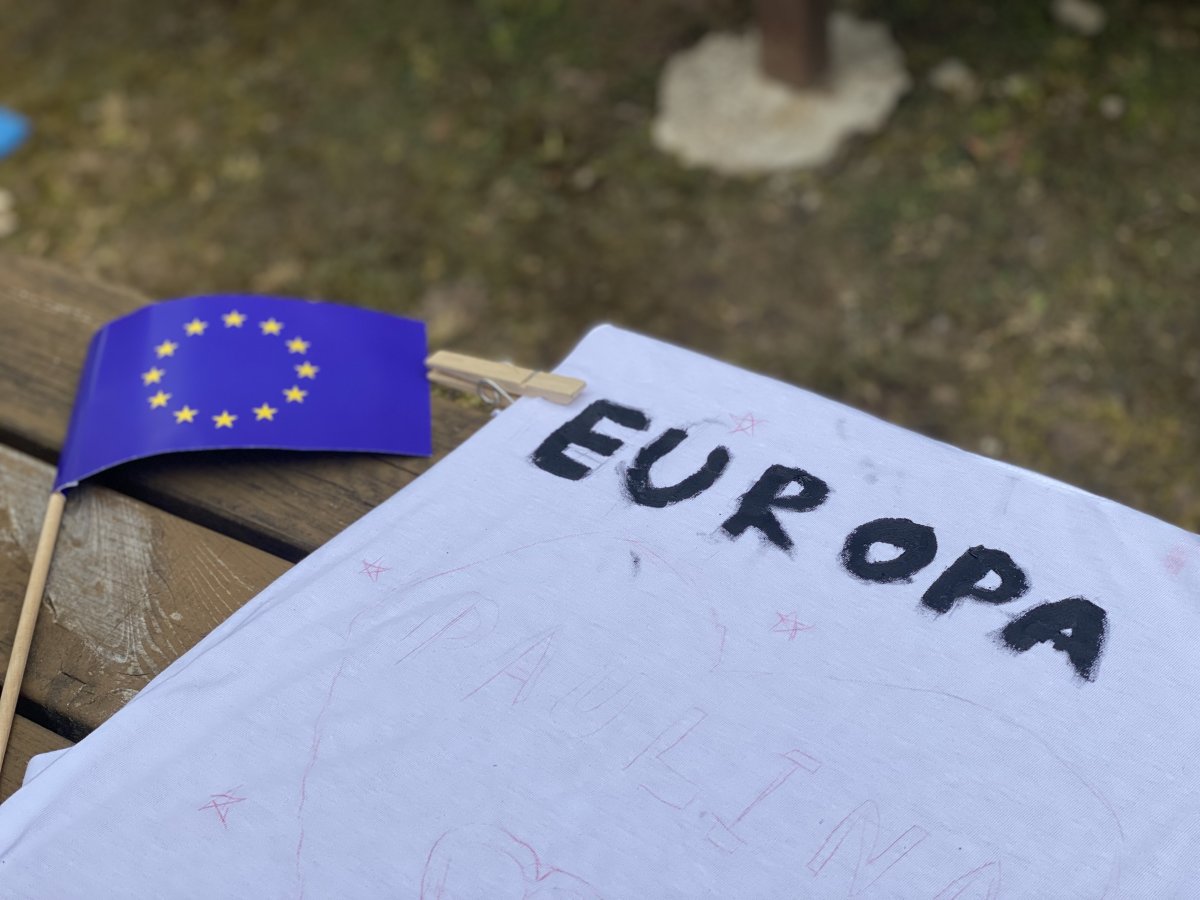 EUROPA
PAULINA